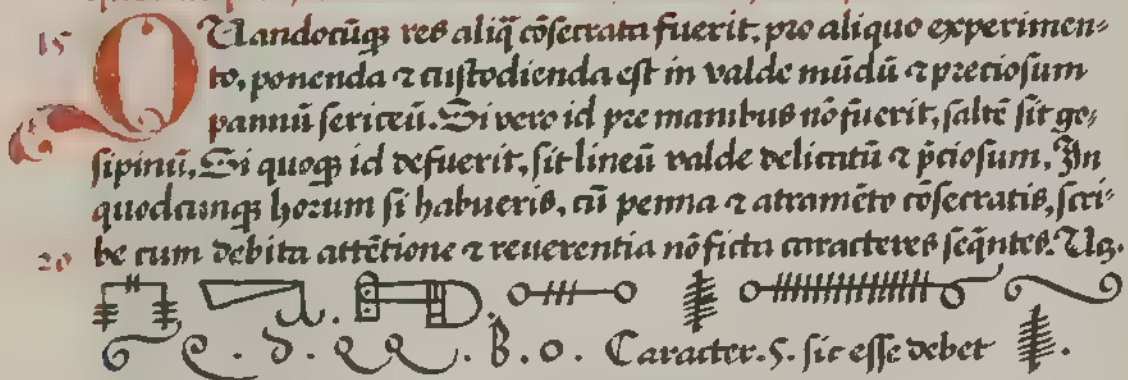 15 QUandocūqꝫ res aliq̄ cōsecrata fuerit, pro aliquo experimen⸗
to, ponenda ⁊ custodienda est in valde mūdū ⁊ preciosum
pannū sericeū. Si vero id pre manibus nō fuerit, saltē sit go⸗
sipinū, Si quoqꝫ id defuerit, sit lineū valde delicatū ⁊ p̄ciosum. In
quodcunqꝫ horum si habueris, cū penna ⁊ atramēto cōsecratis, scri⸗
20 be cum debita attētione ⁊ reuerentia nō ficta caracteres seq̄ntes. Vꝫ.
Caracter. 5. sic esse debet